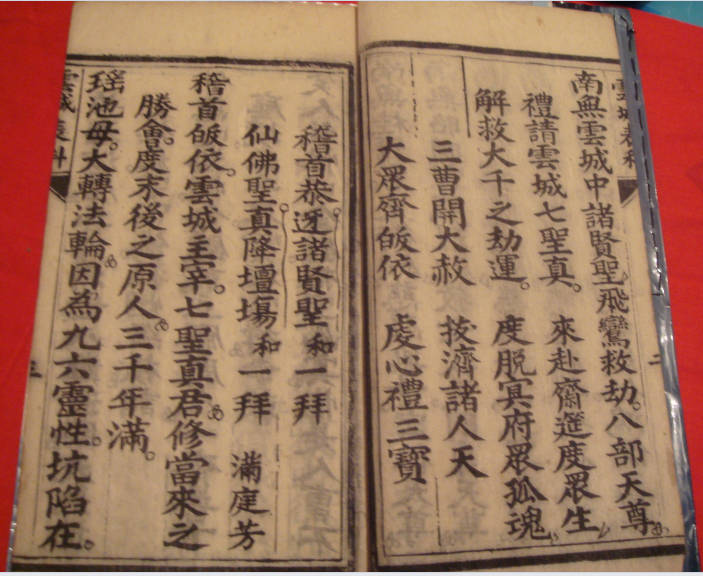 南無雲城中諸賢聖。飛鸞救劫。八部天尊
禮請雲城七聖真。來赴齋筵度眾生
解救大千之劫運。度脫冥府眾孤魂
三曹開大赦 拔濟諸人天
大眾齊皈依 虔心禮三寶
稽首恭迓諸賢聖和一拜
仙佛聖真降壇場和一拜 滿庭芳
稽首皈依。雲城主宰。七聖真君修當來之
勝會。度末後之原人。三千年滿。
瑤池母。大轉法輪。因為九六靈性。坑陷在。
雲城表科
三
雲城表科
二